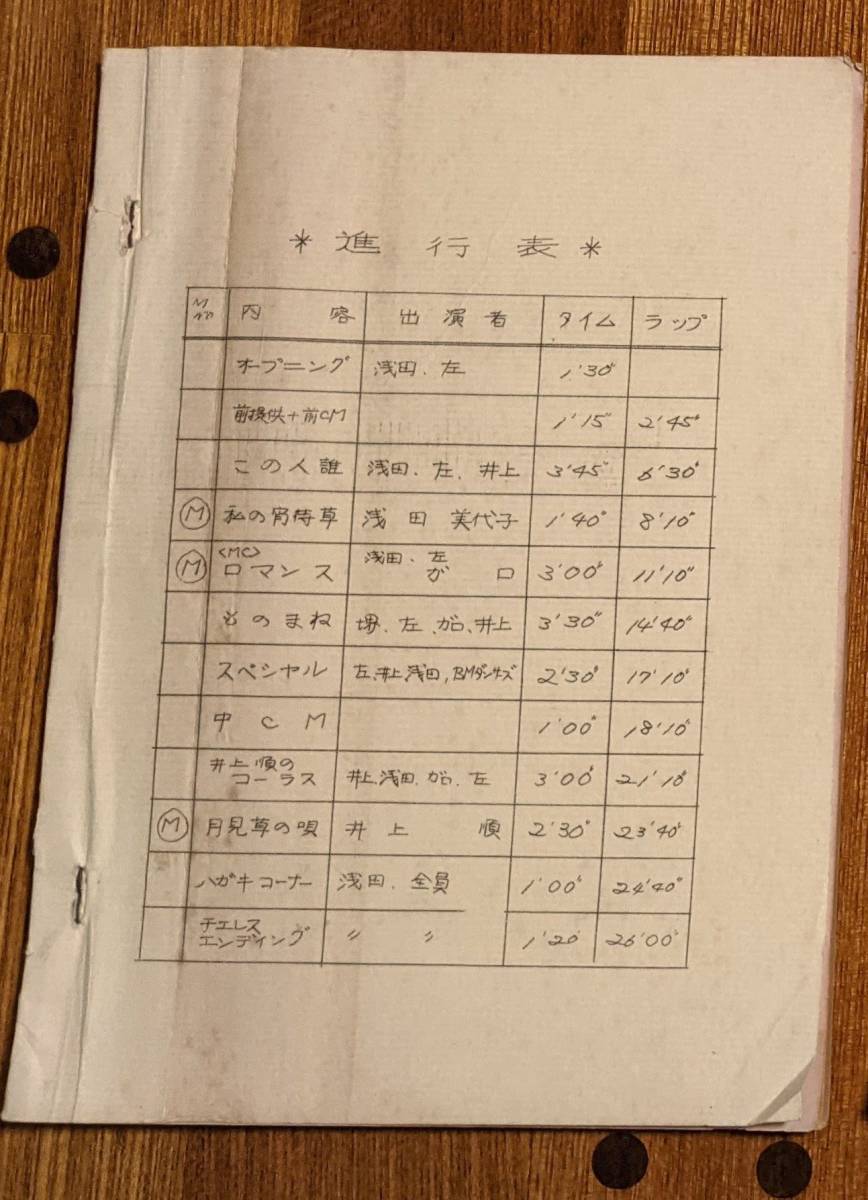 ＊進行表＊
MNo 内容 出演者 タイム ラップ
オープニング 浅田、左 1'30"
前提供+前CM 1'15" 2'45"
この人誰 浅田、左、井上 3'45" 6'30"
Ⓜ 私の宵待草 浅田美代子 1'40" 8'10"
<MC> 浅田、左
Ⓜ ロマンス ガロ 3'00" 11'10"
ものまね 堺、左、ガロ、井上 3'30" 14'40"
スペシャル 左、井上、浅田、BMダンサーズ 2'30" 17'10"
中CM 1'00" 18'10"
井上順の
コーラス 井上、浅田、ガロ、左 3'00" 21'10"
Ⓜ 月見草の唄 井上順 2'30" 23'40"
ハガキコーナー 浅田、全員 1'00" 24'40"
チェレス
エンディング 〃 〃 1'20" 26'00"